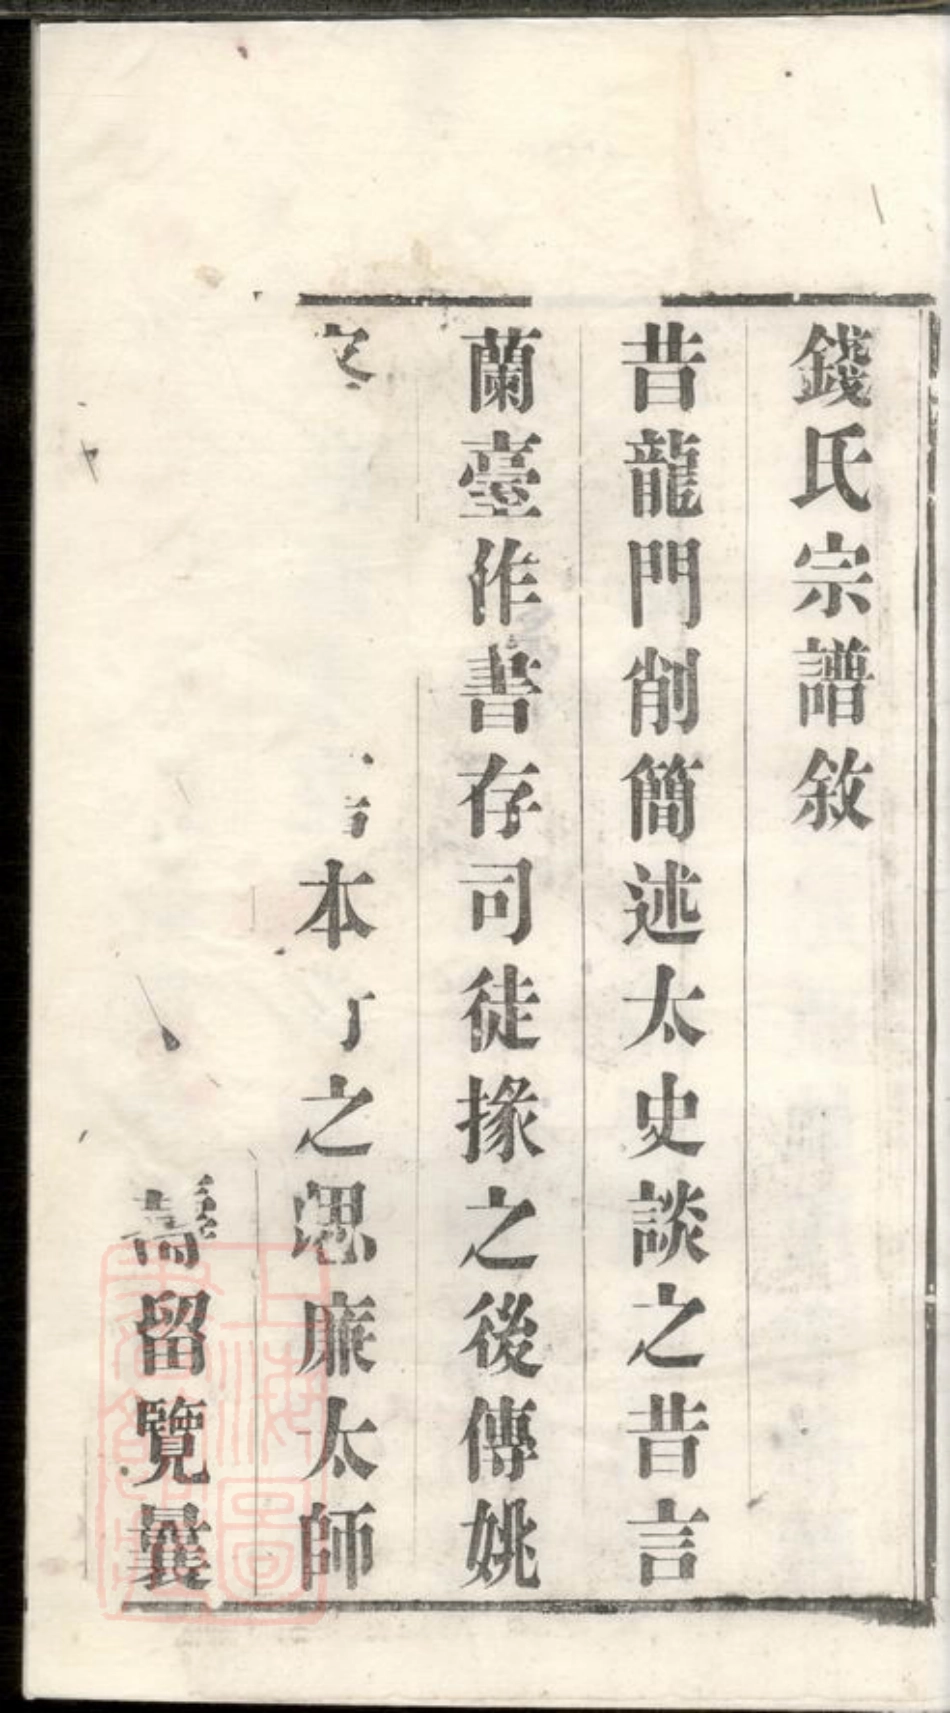 錢氏宗譜敘
昔龍門削簡述太史談之昔言
蘭臺作書存司徒掾之後傳姚
本之思廉太師
壽留覽曩
上海圖書館藏